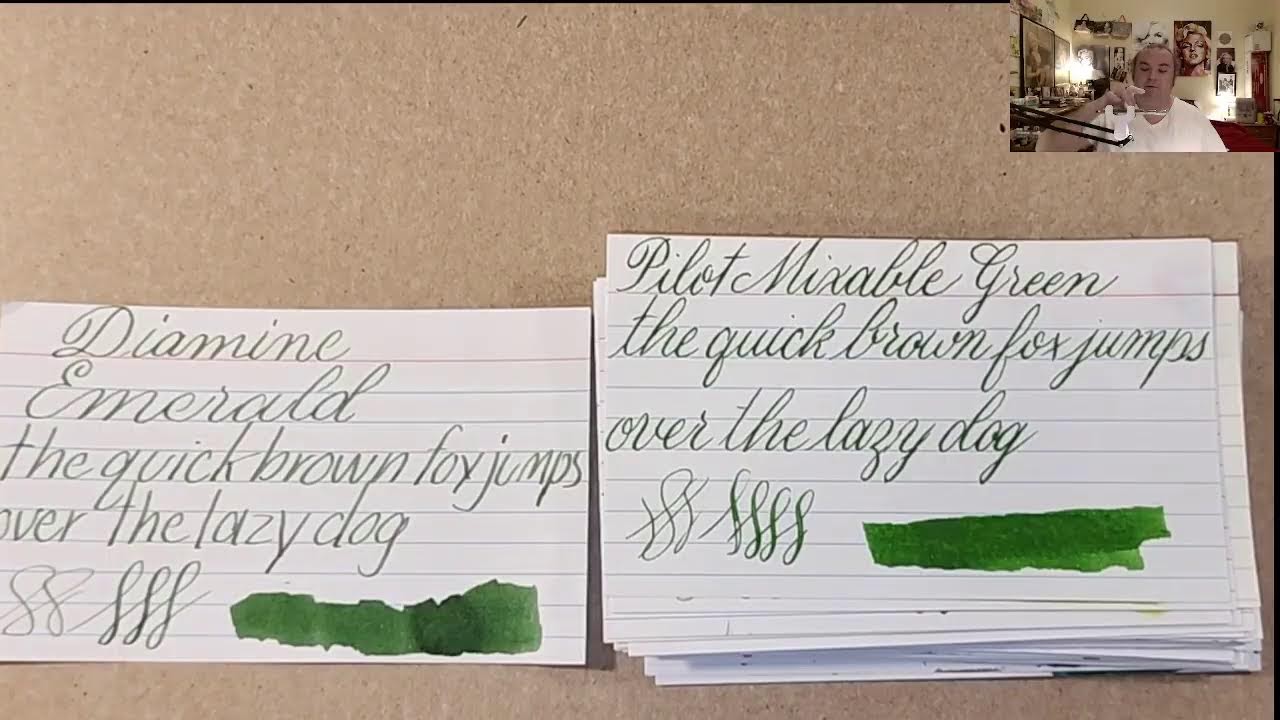 Diamine
Emerald
the quick brown fox jumps
over the lazy dog
Pilot Mixable Green
the quick brown fox jumps
over the lazy dog